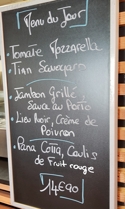 Menu du Jour
Tomate Mozzarella
Tian Savoyard
Jambon Grillé
Sauce au Porto
Lieu Noir, Crème de
Poivron
Pana Cotta, Coulis
de Fruit rouge
14€90